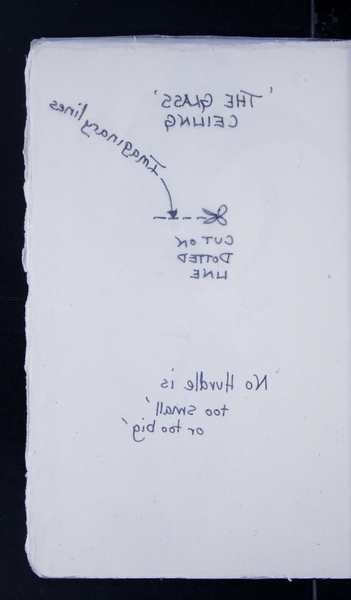 'THE GLASS'
CEILING
Imaginary lines
CUT ON
DOTTED
LINE
'No Hurdle is
too small'
or too big'